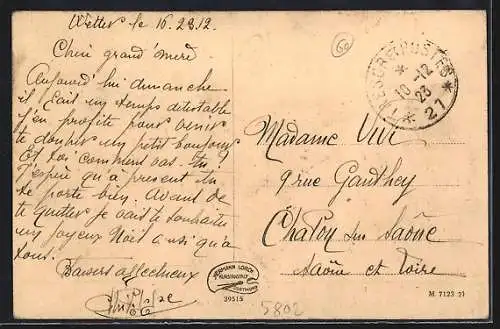 Wetter le 16.2312.
Chère grand'mère
Aujourd'hui dimanche
il fait un temps détestable
j'en profite pour venir
te donner un petit bonjour
Et toi comment vas-tu?
J'espère qu'à présent tu
te porte bien. Avant de
te quitter je vais te souhaiter
un joyeux Noël ainsi qu'à
tous.
Baisers affectueux
60
* 10-12 23 *
1 * 27
Madame Vve
9 rue Gauthey
Chalon sur Saône
Saône et Loire
HERMANN LORCH
KUNSTANSTALT
DORTMUND
39515
5802
M 7123 21